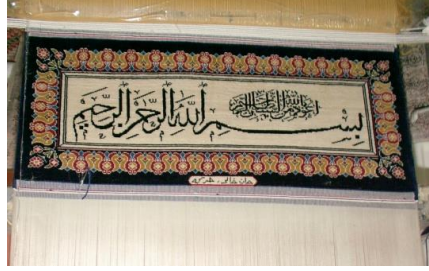 اعوذ بالله من الشیطان الرجیم
بِسْمِ ٱللَّهِ الرَّحْمٰنِ الرَّحِيمِ